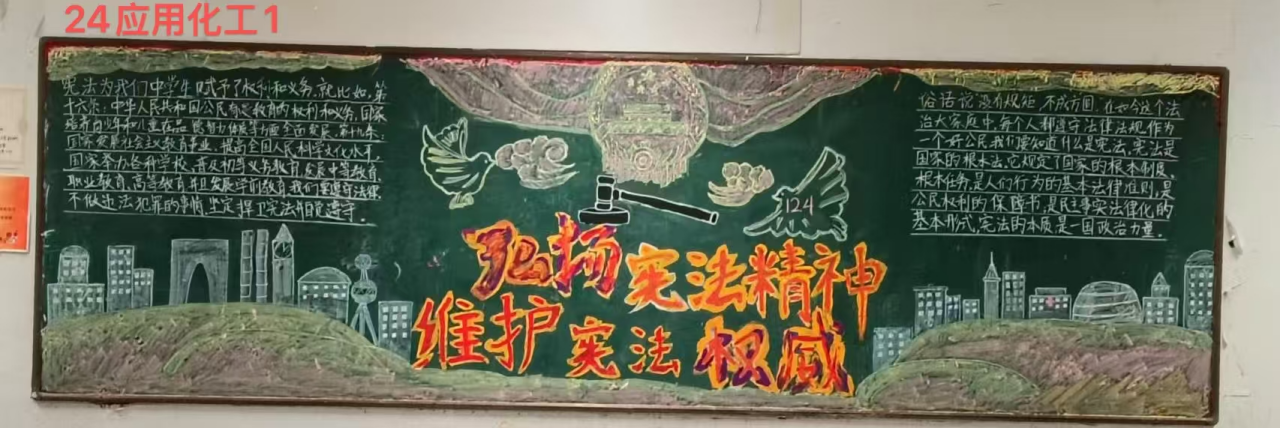 24应用化工1
宪法为我们中学生赋予了权利和义务,就比如,第
十六条:中华人民共和国公民有受教育的权利和义务,国家
培养青少年和儿童在品德智力体质等方面全面发展。第十九条:
国家发展社会主义教育事业,提高全国人民科学文化水平,
国家举办各种学校,普及初等义务教育,发展中等教育,
职业教育,高等教育并且发展学前教育,我们要遵守法律,
不做违法犯罪的事情,坚定捍卫宪法并自觉遵守。
124
弘扬宪法精神
维护宪法权威
俗话说没有规矩,不成方圆,在如今这个法
治大家庭中,每个人都遵守法律法规,作为
一个好公民,我们要知道什么是宪法,宪法是
国家的根本法,它规定了国家的根本制度,
根本任务,是人们行为的基本法律准则,是
公民权利的保障书,是民主事实法律化的
基本形式,宪法的本质是一国政治力量。